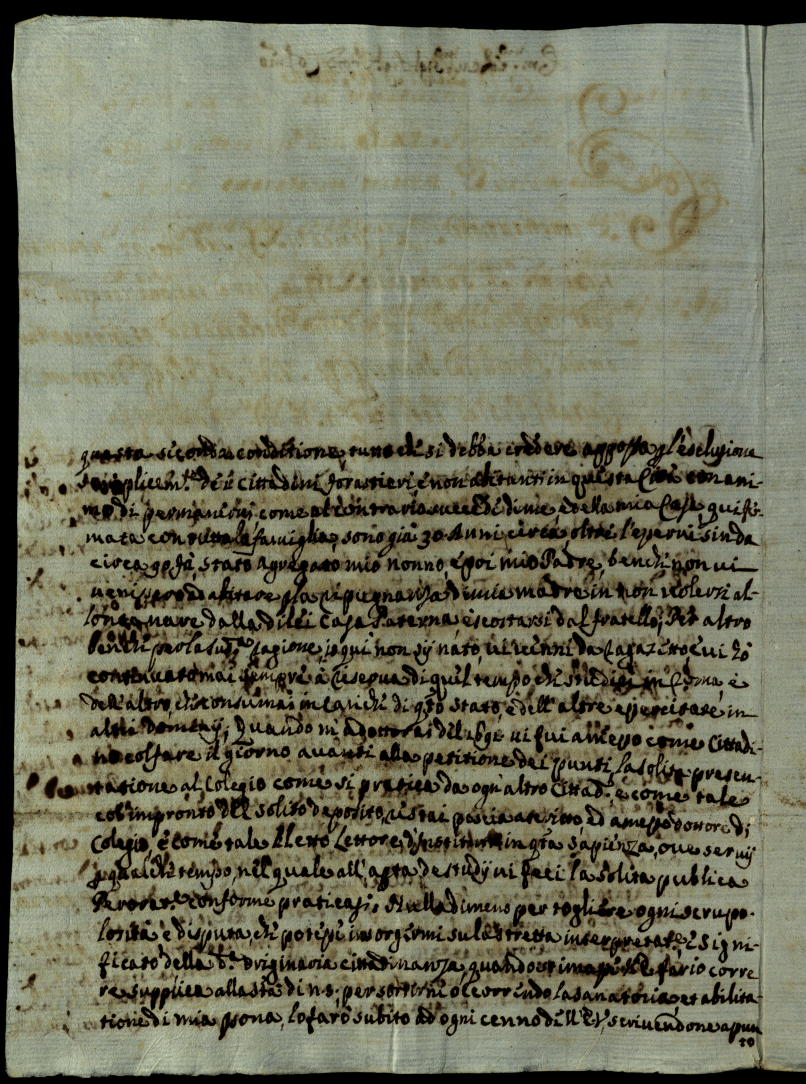 questa seconda conditione, tutto che si debba credere apposta p l'esclusione
semplicem.te de i cittadini forastieri, e non abitanti in questa Città con ani-
mo di permanervi, come al contrario succede di me, e della mia Casa, qui fir-
mata con tutta la famiglia, sono già 30 Anni circa, oltre l'esservi sin da
circa 90 fà, stato agregato mio nonno, e poi mio Padre, benche non vi
venissero ad abitare p la repugnanza di mia madre in non volersi al-
lontanare dalla di lei Casa Paterna, e scostarsi dal fratello; Per altro
benche p la sud.a cagione, io qui non sij nato, vi venni da ragazetto, e vi hò
continuato mai sempre à riserva di quel tempo che studiai in Roma, e
dell'altro, che consumai in cariche di q.to stato, e dell'altre esercitate in
alieni Dominij; Quando m'adottorai del 1690 vi fui ammesso come Cittadi-
no ed fare il giorno avanti alla petitione dei punti, la solita presen-
tatione al Colegio come si pratica da ogn'altro Cittad.o, e come tale
col'impronto del solito deposito, restai poscia ascritto, ed amesso dottore di
Colegio, e come tale eletto Lettore d'Instituta in q.ta Sapienza, ove servij
p qualche tempo, nel quale all'apta de studij vi feci la solita publica
Peroraz.e conforme praticasi; Nulladimeno per togliere ogni scrupo-
losità, e disputa, che potesse insorgermi sula stretta interpretat.e, e signi-
ficato della d.a originaria cittadinanza, quando stimasse necessario corre-
re supplica alla Stà di N.S. per sortirni occorrendo la sanatoria, et abilita-
tione di mia psona, lo farò subito ad ogni cenno dell'E.V. scrivendone apun
to